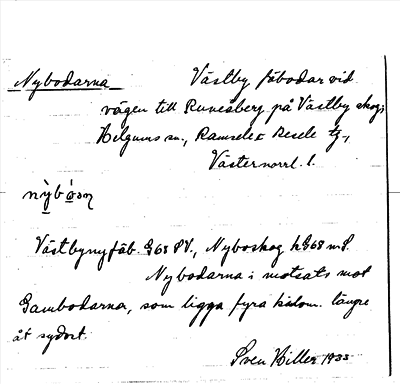 Nybodarna Västby fäbodar vid
vägen till Runesberg på Västby skog,
Helgums sn, Ramsele & Resele tg,
Västernorrl. l.
Västbynyfäb. G68 SV., Nyboskog hG68 mS.
Nybodarna i motsats mot
Gambodarna, som ligga fyra kilom. längre
åt sydost.
Sven Hiller 1933